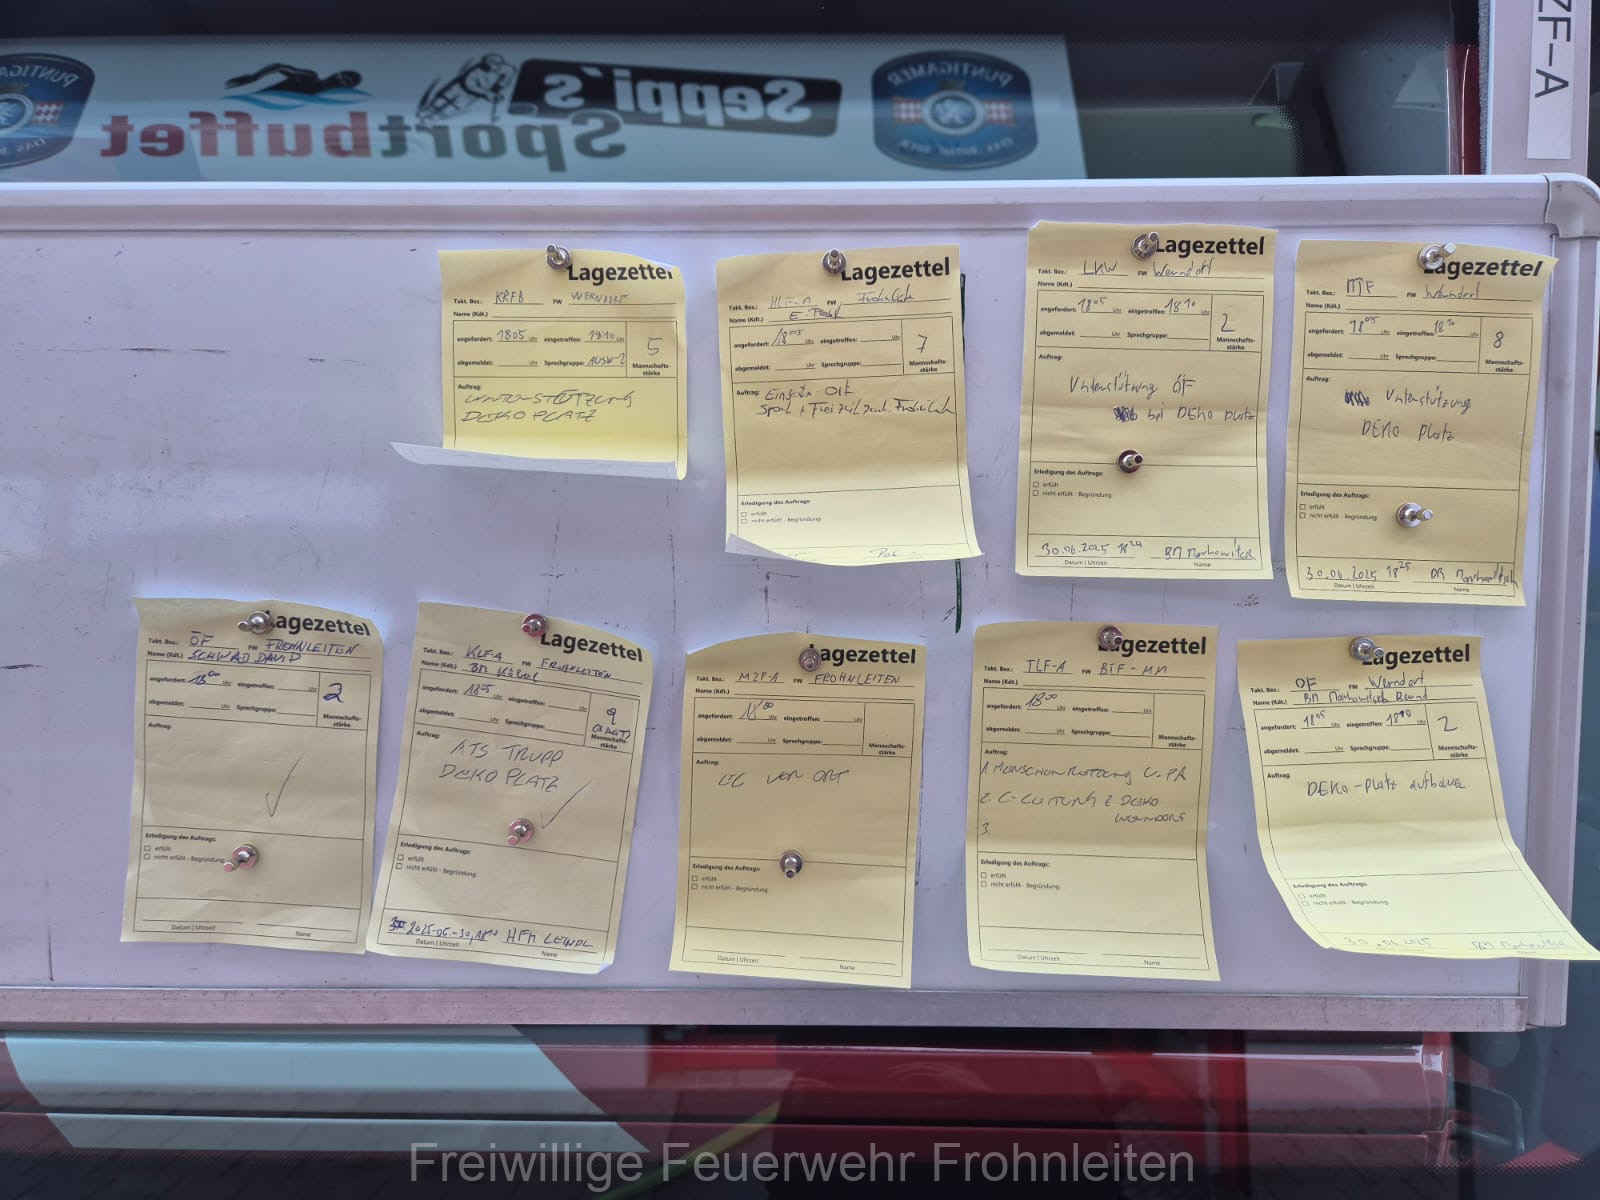 ZF-A
PUNTIGAMER
Seppi's
Sportbuffet
PUNTIGAMER
Lagezettel
Takt. Bez.: KRFB FW WERNDORF
Name (Kdt.)
angefordert: 18 05 Uhr eingetroffen: 18 10 Uhr
5
abgemeldet: Uhr Sprechgruppe: AUSW-2
Mannschafts-
stärke
Auftrag:
UNTERSTÜTZUNG
DEKOPLATZ
Lagezettel
Takt. Bez.: HLF-A FW
Name (Kdt.)
angefordert: 18 05 Uhr eingetroffen: Uhr
7
abgemeldet: Uhr Sprechgruppe:
Mannschafts-
stärke
Auftrag:
Erledigung des Auftrags:
erfüllt
nicht erfüllt - Begründung:
Lagezettel
Takt. Bez.: LKW FW Werndorf
Name (Kdt.)
angefordert: 18 05 Uhr eingetroffen: 18 10 Uhr
2
abgemeldet: Uhr Sprechgruppe:
Mannschafts-
stärke
Auftrag:
Unterstützung ÖF
bei DEKO platz
Erledigung des Auftrags:
erfüllt
nicht erfüllt - Begründung:
30.06.2025 18 24 BM Markowitsch
Datum | Uhrzeit Name
Lagezettel
Takt. Bez.: MTF FW Werndorf
Name (Kdt.)
angefordert: 18 05 Uhr eingetroffen: 18 10 Uhr
8
abgemeldet: Uhr Sprechgruppe:
Mannschafts-
stärke
Auftrag:
Unterstützung
DEKO platz
Erledigung des Auftrags:
erfüllt
nicht erfüllt - Begründung:
30.06.2025 18 25 Markowitsch
Datum | Uhrzeit Name
Lagezettel
Takt. Bez.: ÖF FW FROHNLEITEN
Name (Kdt.) SCHWAB DAVID
angefordert: 18 00 Uhr eingetroffen: Uhr
2
abgemeldet: Uhr Sprechgruppe:
Mannschafts-
stärke
Auftrag:
Erledigung des Auftrags:
erfüllt
nicht erfüllt - Begründung:
Datum | Uhrzeit Name
Lagezettel
Takt. Bez.: KLF-A FW FROHNLEITEN
Name (Kdt.) BM
angefordert: 18 05 Uhr eingetroffen: Uhr
9
abgemeldet: Uhr Sprechgruppe:
Mannschafts-
stärke
Auftrag:
ATS TRUPP
DEKOPLATZ
Erledigung des Auftrags:
erfüllt
nicht erfüllt - Begründung:
2025-06-30, 18 10 HFM LEINDL
Datum | Uhrzeit Name
Lagezettel
Takt. Bez.: MZF-A FW FROHNLEITEN
Name (Kdt.)
angefordert: 18 00 Uhr eingetroffen: Uhr
abgemeldet: Uhr Sprechgruppe:
Mannschafts-
stärke
Auftrag:
VOR ORT
Erledigung des Auftrags:
erfüllt
nicht erfüllt - Begründung:
Datum | Uhrzeit Name
Lagezettel
Takt. Bez.: TLF-A FW BTF-MM
Name (Kdt.)
angefordert: 18 00 Uhr eingetroffen: Uhr
abgemeldet: Uhr Sprechgruppe:
Mannschafts-
stärke
Auftrag:
1. MENSCHENRETTUNG U. PA
2. C-LEITUNG Z. DEKO
WERNDORF
3.
Erledigung des Auftrags:
erfüllt
nicht erfüllt - Begründung:
Datum | Uhrzeit Name
Lagezettel
Takt. Bez.: ÖF FW Werndorf
Name (Kdt.) BM Markowitsch Bernd
angefordert: 18 05 Uhr eingetroffen: 18 10 Uhr
2
abgemeldet: Uhr Sprechgruppe:
Mannschafts-
stärke
Auftrag:
DEKO-platz aufbauen
Erledigung des Auftrags:
erfüllt
nicht erfüllt - Begründung:
30.06.2025 BM Markowitsch
Freiwillige Feuerwehr Frohnleiten